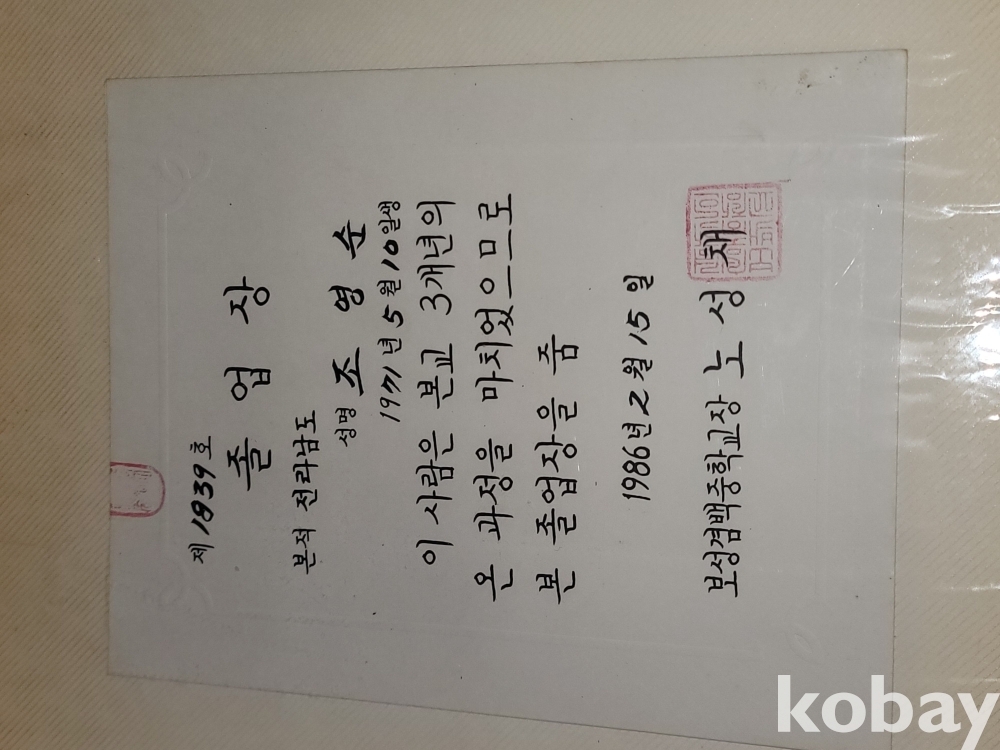 제 1839 호
졸 업 장
본적 전라남도
성명 조 영 순
1971년 5월 10일생
이 사람은 본교 3개년의
온 과정을 마치었으므로
본 졸업장을 줌
1986년 2월 15일
보성겸백중학교장 노 성 채
kobay